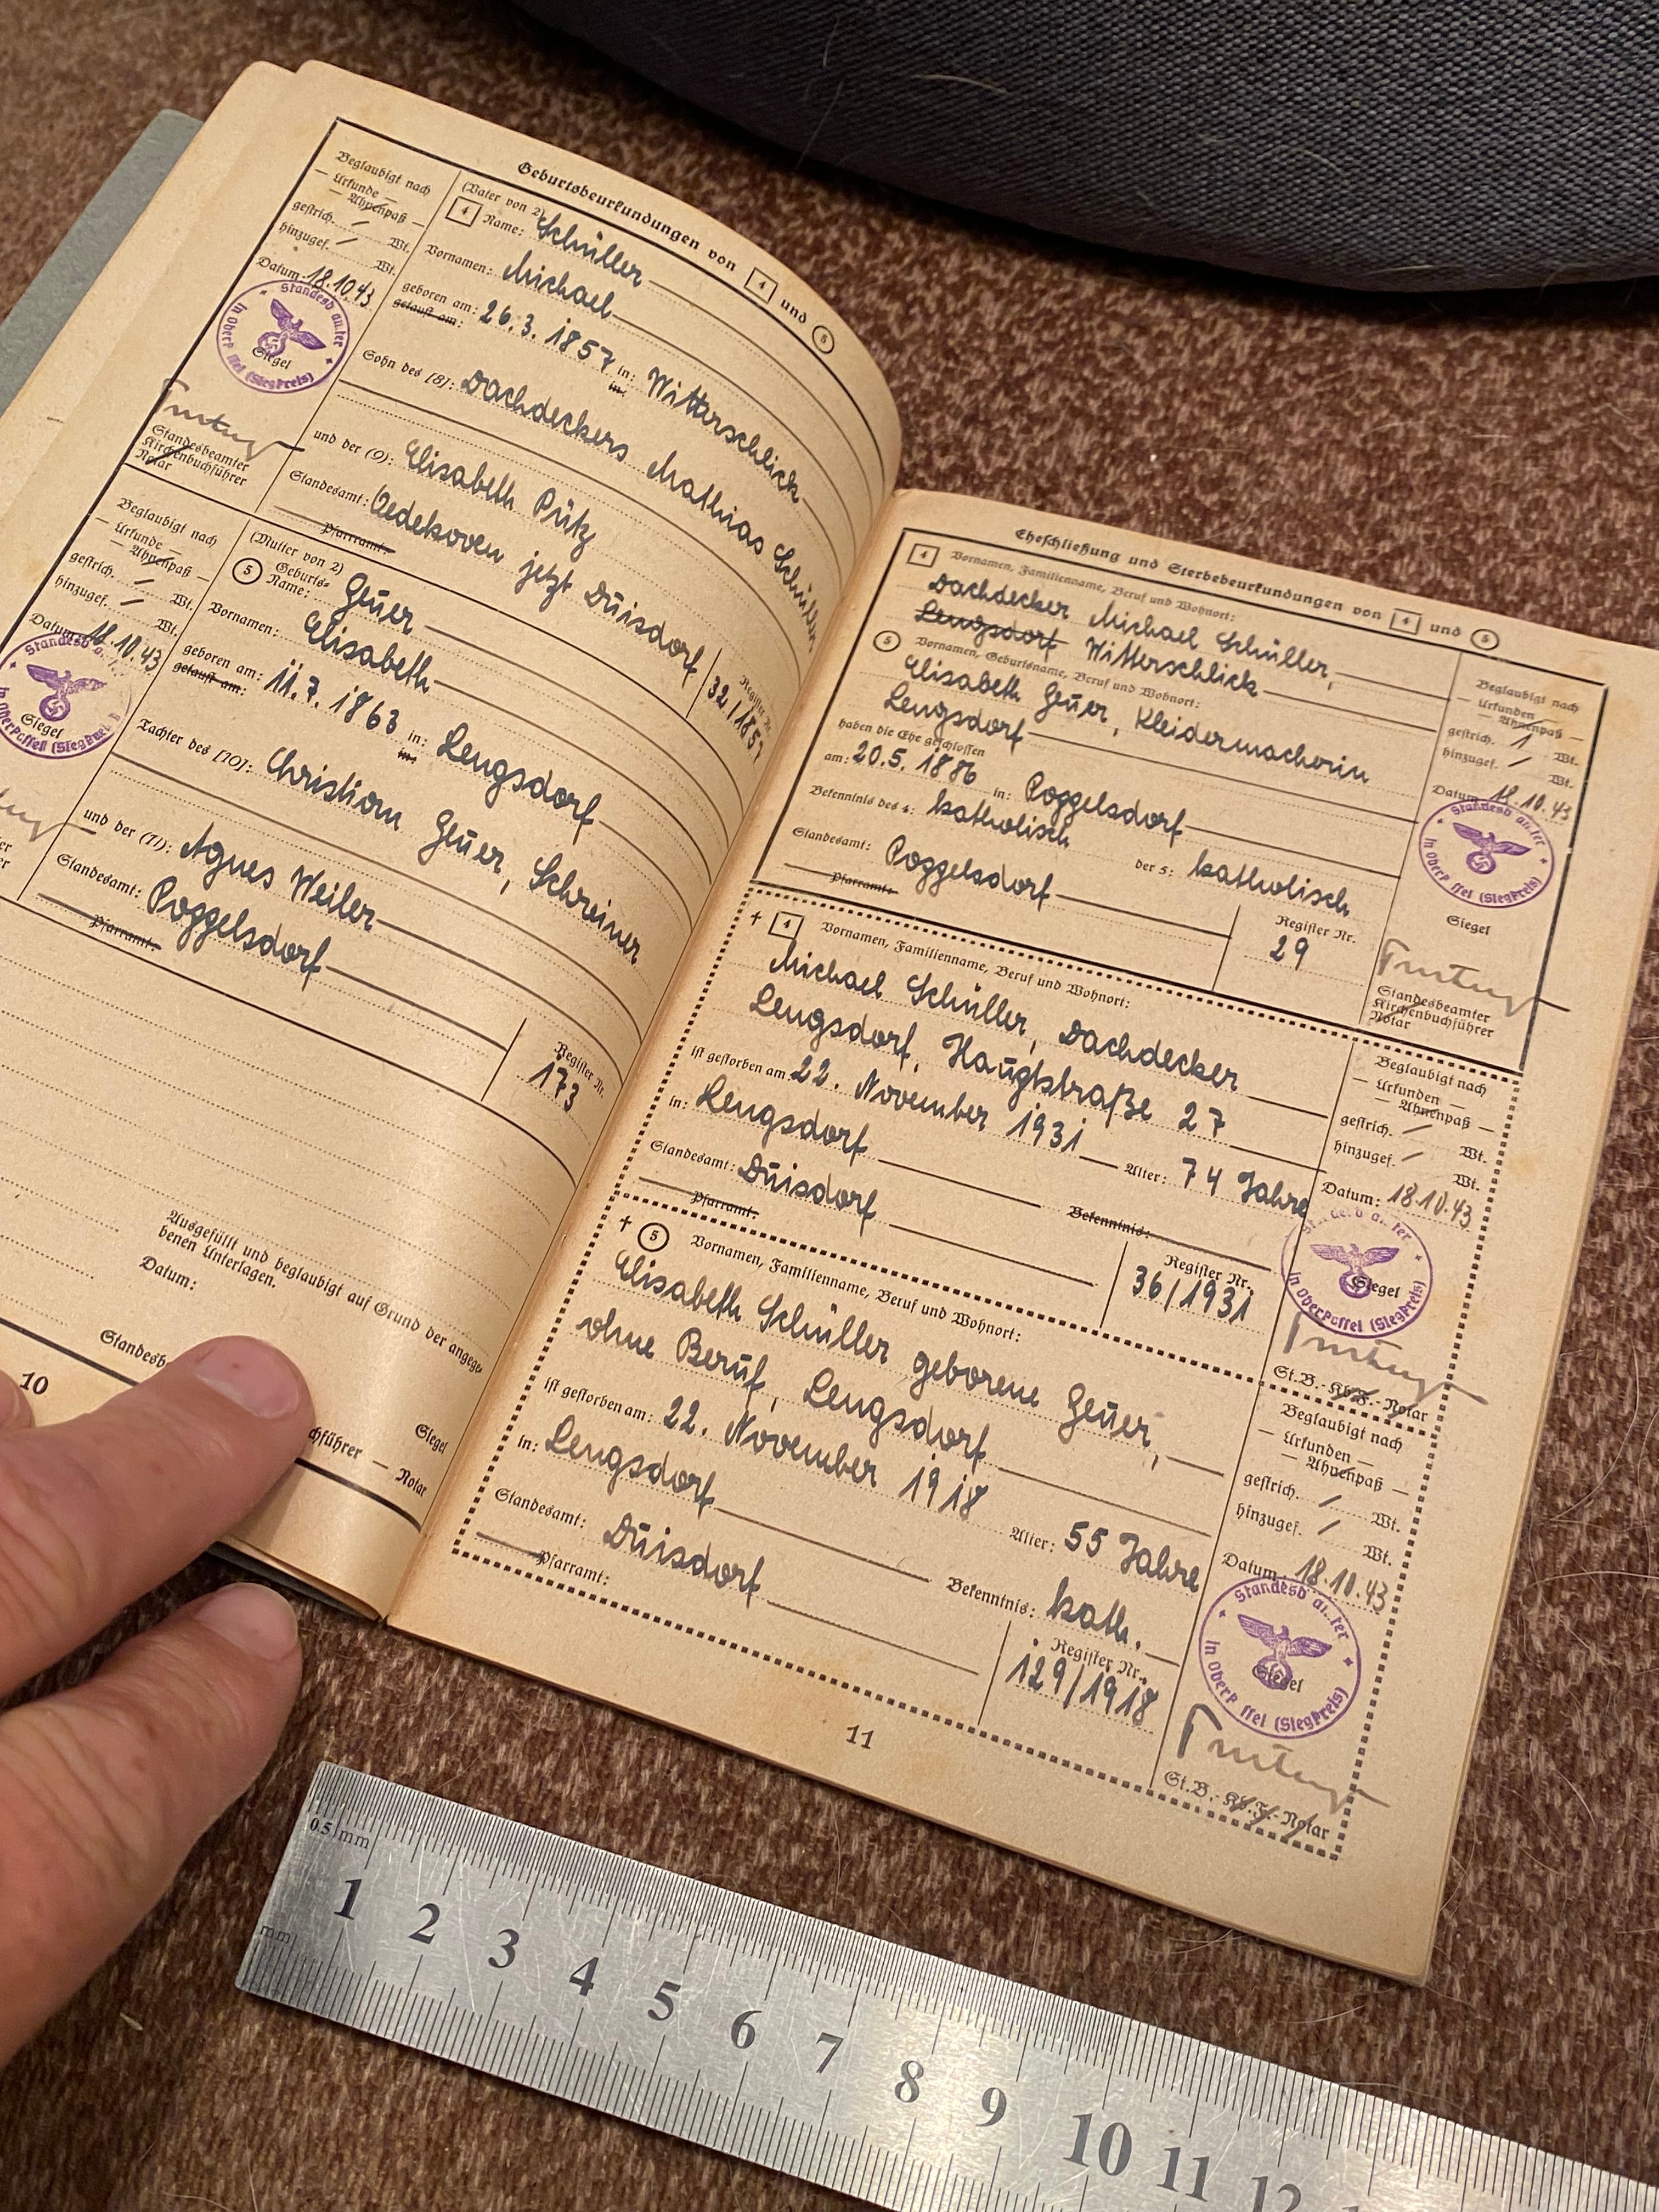 Geburtsbeurkundungen von 4 und 5
Beglaubigt nach
— Urkunde —
— Ahnenpaß —
gestrich. / Wt.
hinzugef. / Wt.
Datum 18.10.43
Standesb
In Oberk ssel (Siegkreis)
Siegel
Standesbeamter
Kirchenbuchführer
Notar
(Vater von 2)
4 Name: Schüller
Vornamen: Michael
geboren am: 26.3.1857 in: Witterschlick
getauft am: in:
Sohn des [8]: Dachdeckers Mathias Schüller
und der (9): Elisabeth Pütz
Standesamt: Oedekoven jetzt Duisdorf
Pfarramt:
Register Nr.
32/1857
Beglaubigt nach
— Urkunde —
— Ahnenpaß —
gestrich. / Wt.
hinzugef. / Wt.
Datum 18.10.43
Siegel
(Mutter von 2)
5 Geburts-
Name: Geuer
Vornamen: Elisabeth
geboren am: 11.7.1863 in: Lengsdorf
getauft am: in:
Tochter des [10]: Christian Geuer, Schreiner
und der (11): Agnes Weiler
Standesamt: Poppelsdorf
Pfarramt:
Register Nr.
173
Ausgefüllt und beglaubigt auf Grund der angege-
benen Unterlagen.
Datum:
Siegel
chführer — Notar
10
Eheschließung und Sterbebeurkundungen von 4 und 5
4 Vornamen, Familienname, Beruf und Wohnort:
Dachdecker Michael Schüller,
Lengsdorf Witterschlick
5 Vornamen, Geburtsname, Beruf und Wohnort:
Elisabeth Geuer, Kleidermacherin
Lengsdorf
haben die Ehe geschlossen
am: 20.5.1886 in: Poppelsdorf
Bekenntnis des 4: katholisch der 5: katholisch
Standesamt: Poppelsdorf
Pfarramt:
Register Nr.
29
Beglaubigt nach
— Urkunden —
— Ahnenpaß —
gestrich. 1 Wt.
hinzugef. / Wt.
Datum 18.10.43
Siegel
Standesbeamter
Kirchenbuchführer
Notar
† 4 Vornamen, Familienname, Beruf und Wohnort:
Michael Schüller, Dachdecker
Lengsdorf, Hauptstraße 27
ist gestorben am 22. November 1931 Alter: 74 Jahre
in: Lengsdorf Bekenntnis:
Standesamt: Duisdorf
Pfarramt:
Register Nr.
36/1931
Beglaubigt nach
— Urkunden —
— Ahnenpaß —
gestrich. / Wt.
hinzugef. / Wt.
Datum: 18.10.43
Siegel
St.B.-Kb.F.-Notar
† 5 Vornamen, Familienname, Beruf und Wohnort:
Elisabeth Schüller geborene Geuer,
ohne Beruf, Lengsdorf
ist gestorben am: 22. November 1918 Alter: 55 Jahre
in: Lengsdorf Bekenntnis: kath.
Standesamt: Duisdorf
Pfarramt:
Register Nr.
129/1918
Beglaubigt nach
— Urkunden —
— Ahnenpaß —
gestrich. / Wt.
hinzugef. / Wt.
Datum: 18.10.43
Siegel
St.B.-Kb.F.-Notar
11
0.5 mm
mm
1 2 3 4 5 6 7 8 9 10 11 12